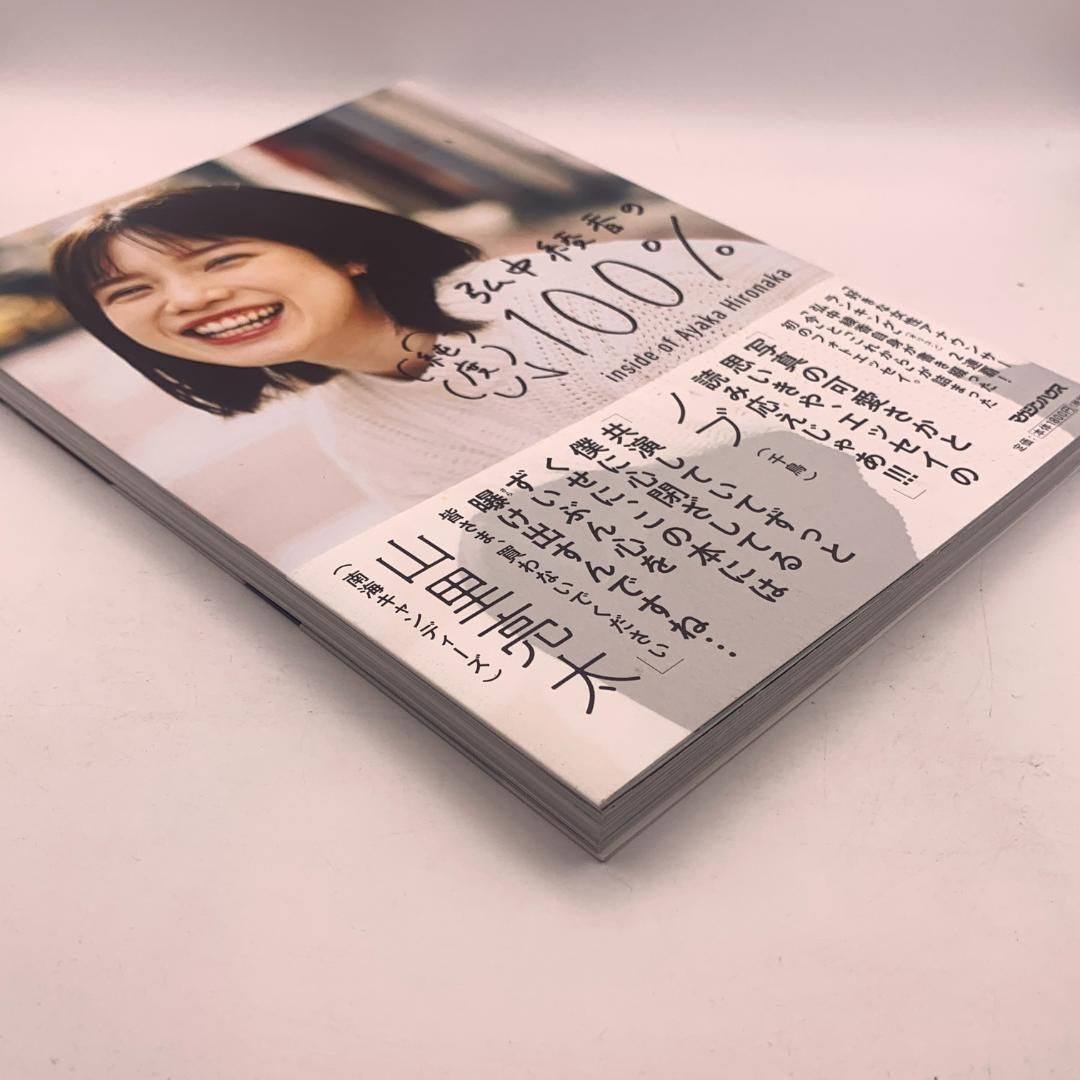 弘中綾香の
(純度)
100%
inside of Ayaka Hironaka
「写真の可愛さかと
思いきや、エッセイの
読み応えじゃあ!!!」
ノブ
(千鳥)
「共演していてずっと
僕に心閉ざしてる
くせに、この本には
ずいぶん心を
曝け出すんですね…
皆さま、買わないでください」
山里亮太
(南海キャンディーズ)
好きな女性アナウンサー
ランキング
2連覇!
弘中綾香自身が書き綴った
初のフォトエッセイ。
マガジンハウス
定価:本体1800円